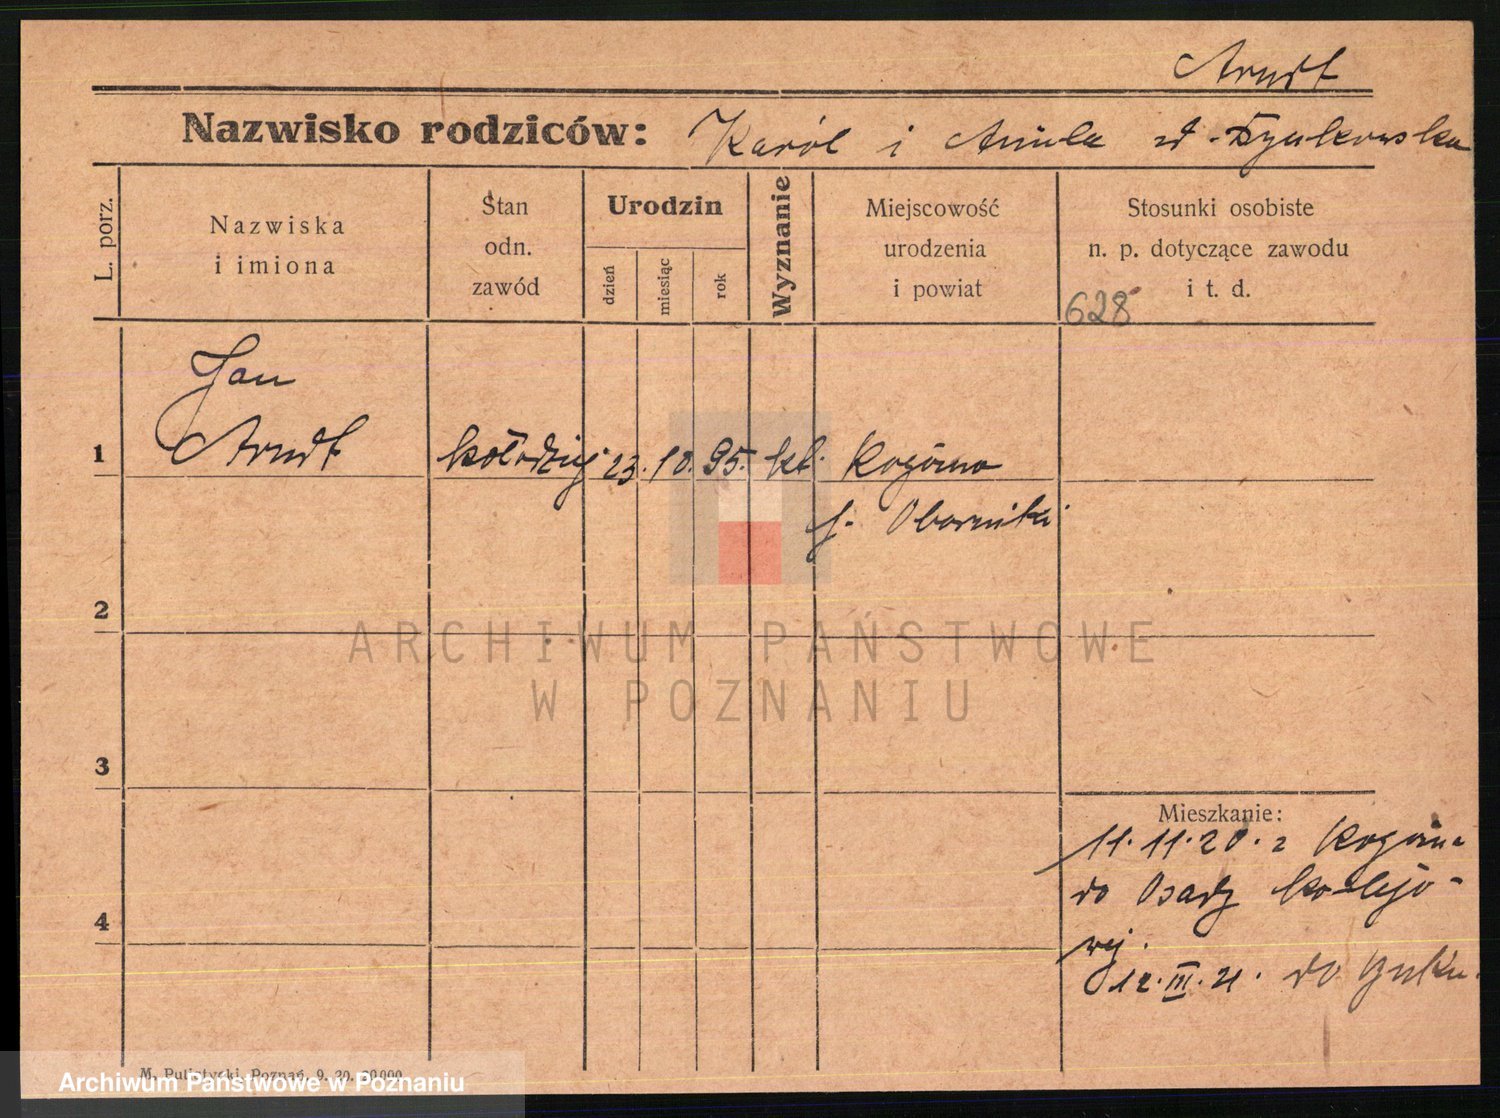 Arndt
Nazwisko rodziców: Karól i Aniela
L. porz.
Nazwiska
i imiona
Stan
odn.
zawód
Urodzin
dzień
miesiąc
rok
Wyznanie
Miejscowość
urodzenia
i powiat
Stosunki osobiste
n. p. dotyczące zawodu
i t. d.
628
Jan
1 Arndt kołodziej 23. 10. 95. kt. Rogoźno
p. Oborniki
2
ARCHIWUM PAŃSTWOWE
W POZNANIU
3
Mieszkanie:
11.11.20. z
do Osady kolejo-
wej.
4
12.III.21. do
M. Putiatycki, Poznań, 9. 20. 20000
Archiwum Państwowe w Poznaniu